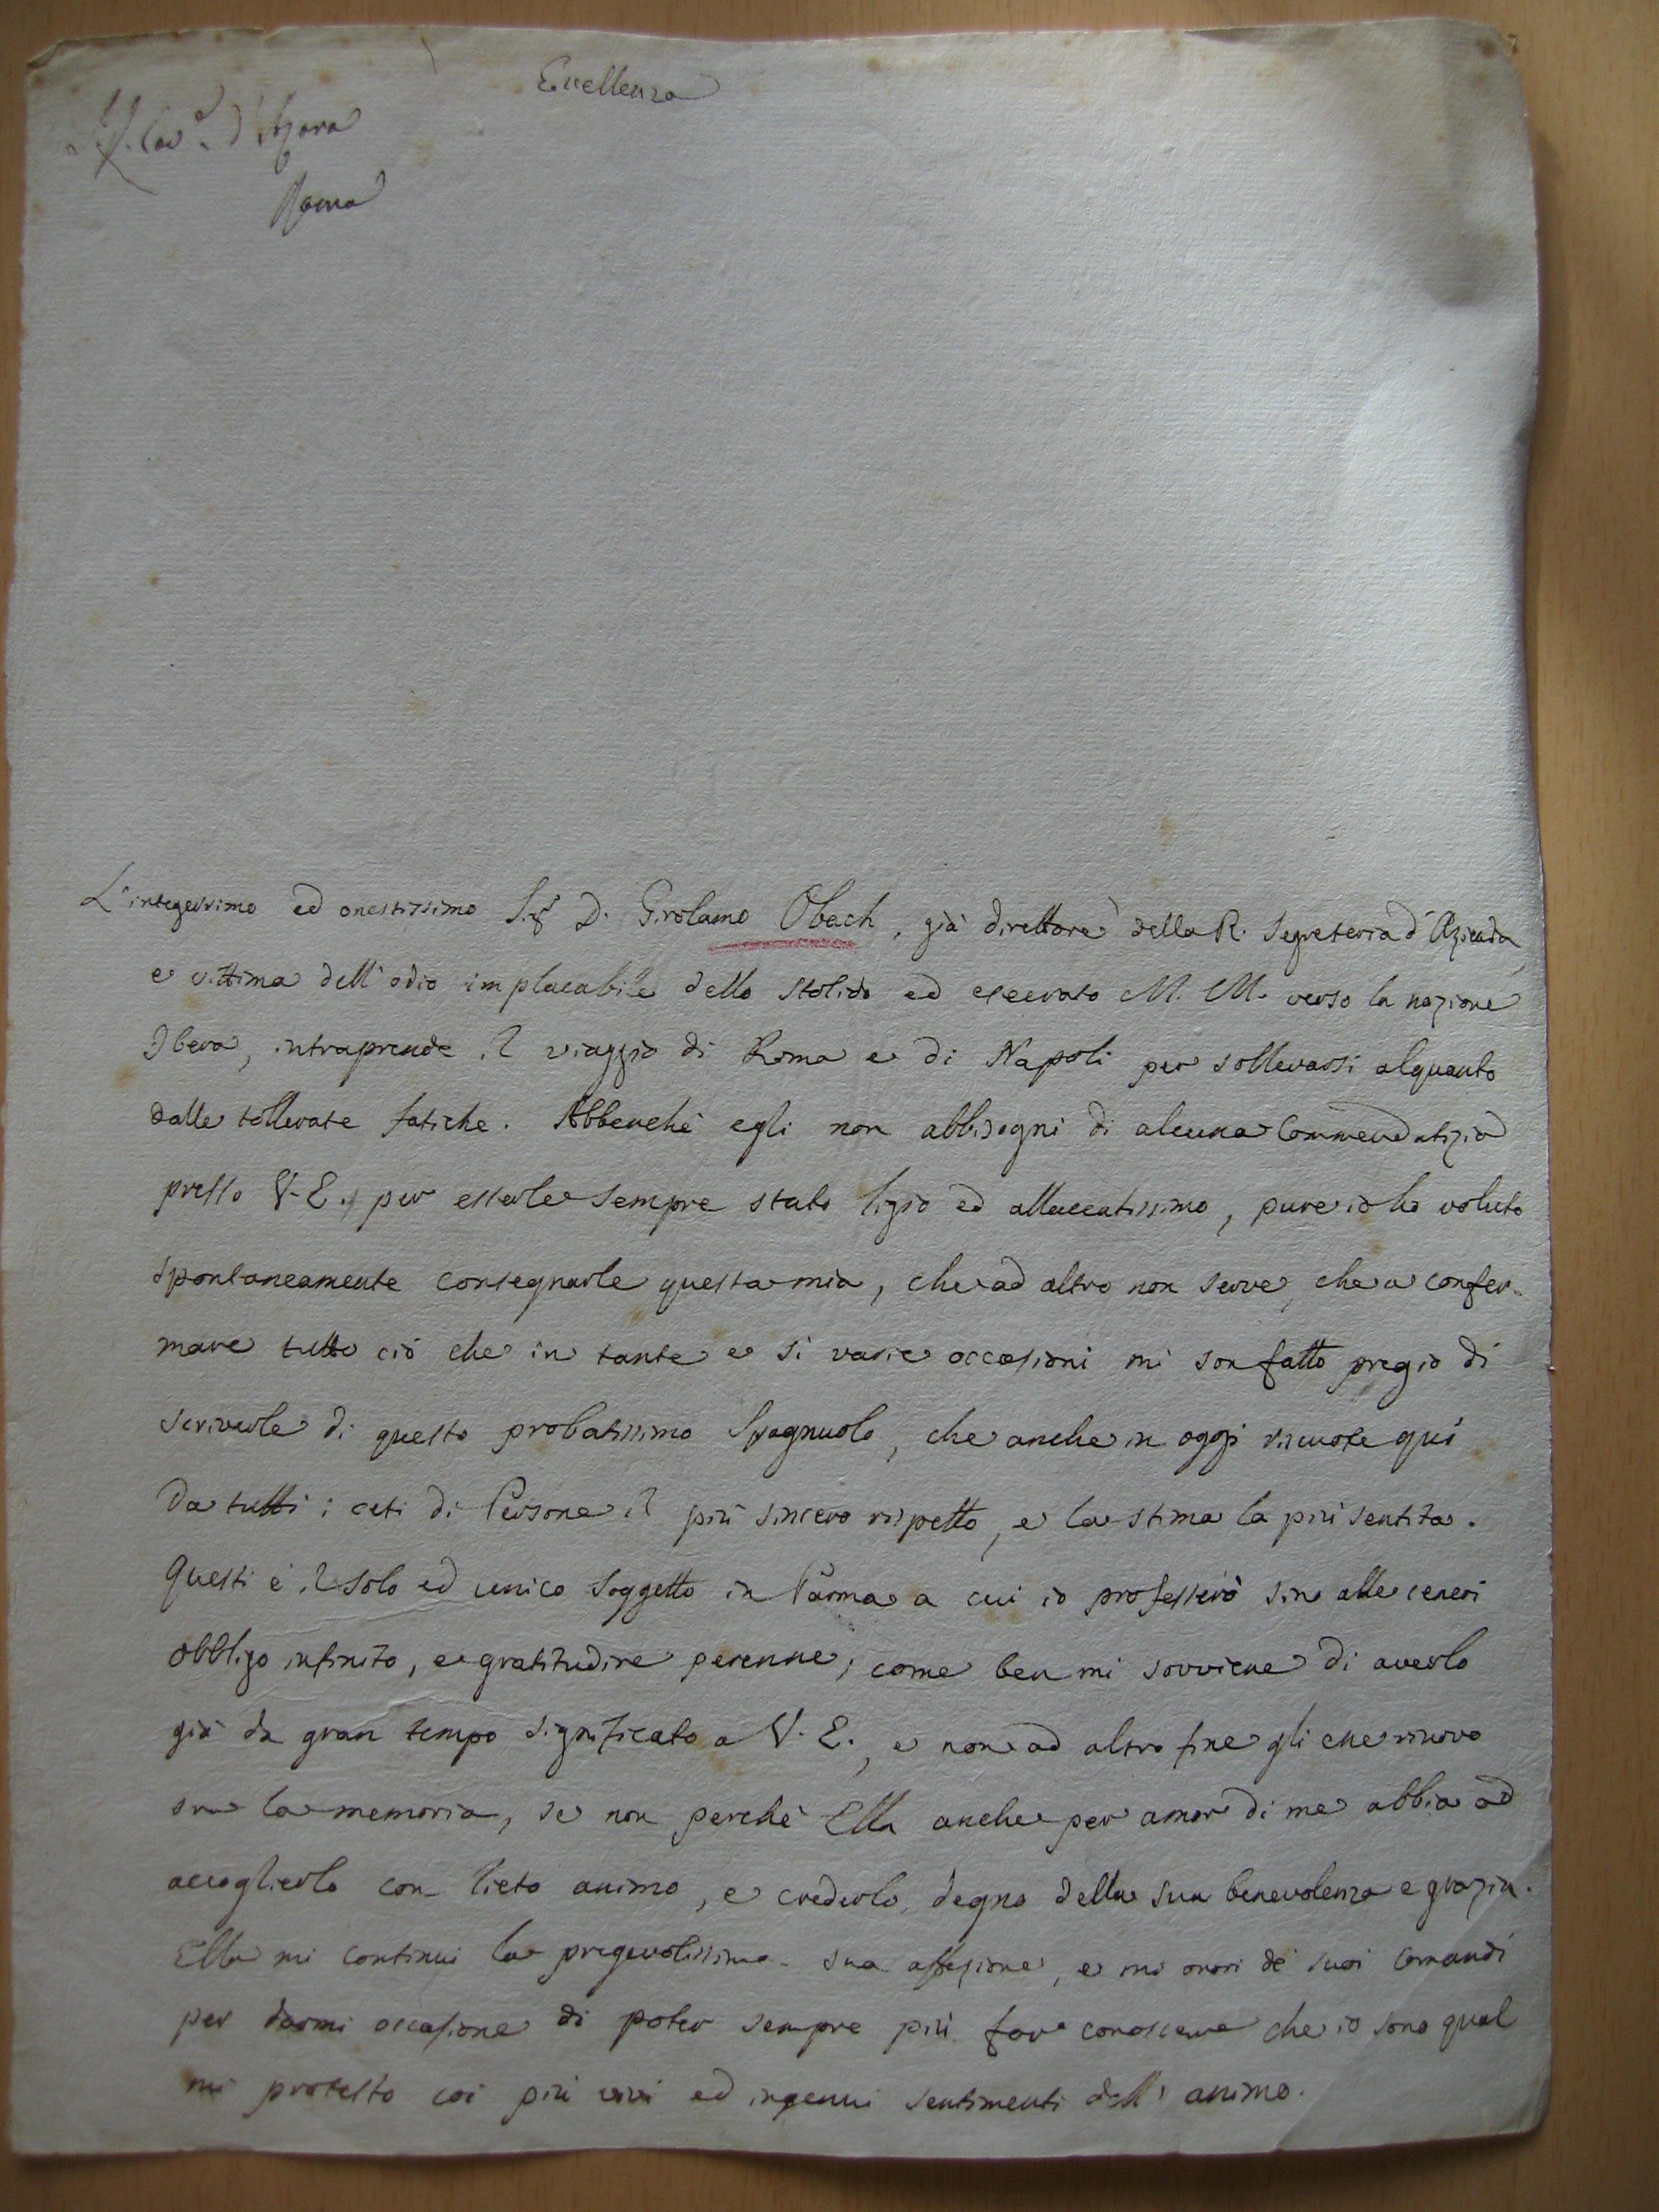 Eccellenza
Cav.e d'Azara
Roma
L'integerrimo ed onestissimo Sig.r D. Girolamo Obach, già direttore della R. Segreteria d'Azienda,
e vittima dell'odio implacabile dello stolido ed esecrato M. M. verso la nazione
Ibera, intraprende il viaggio di Roma e di Napoli per sollevarsi alquanto
dalle tollerate fatiche. Abbenchè egli non abbisogni di alcuna Commendatizia
presso V. E. per esserle sempre stato ligio ed attaccatissimo, pure io ho voluto
spontaneamente consegnarle questa mia, che ad altro non serve, che a confer-
mare tutto ciò che in tante e sì varie occasioni mi son fatto pregio di
scriverle di questo probatissimo Spagnuolo, che anche in oggi riscuote quì
da tutti i ceti di Persone il più sincero rispetto, e la stima la più sentita.
Questi è il solo ed unico soggetto in Parma a cui io professerò sin alle ceneri
obbligo infinito, e gratitudine perenne, come ben mi sovviene di averlo
già da gran tempo significato a V. E., e non ad altro fine gli ene rinovo
la memoria, se non perchè Ella anche per amor di me abbia ad
accoglierlo con lieto animo, e crederlo degno della sua benevolenza e grazia.
Ella mi continui la pregevolissima sua affezione, e mi onori de' suoi comandi
per darmi occasione di poter sempre più far conoscere che io sono qual
mi protesto coi più vivi ed ingenui sentimenti dell'animo.